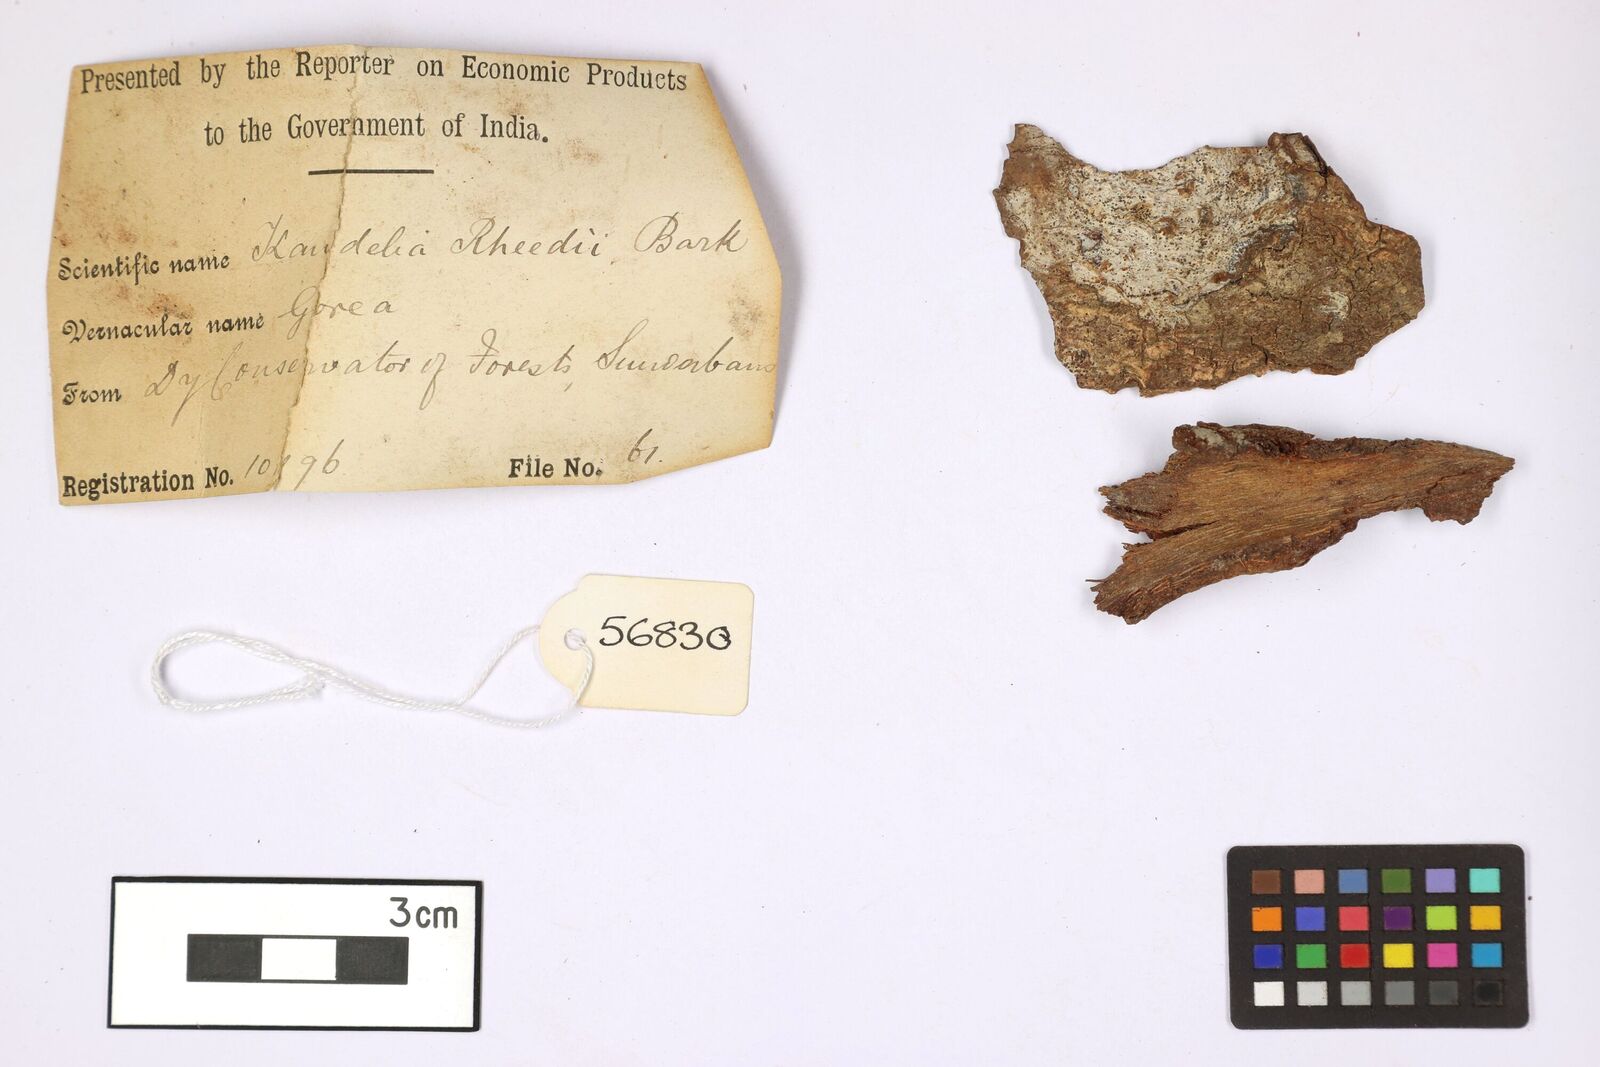 Presented by the Reporter on Economic Products
to the Government of India.
Scientific name Kandelia Rheedii Bark
Vernacular name Gorea
From Dy Conservator of Forests, Sunderbans
Registration No. 10896
File No. 61.
56830
3cm